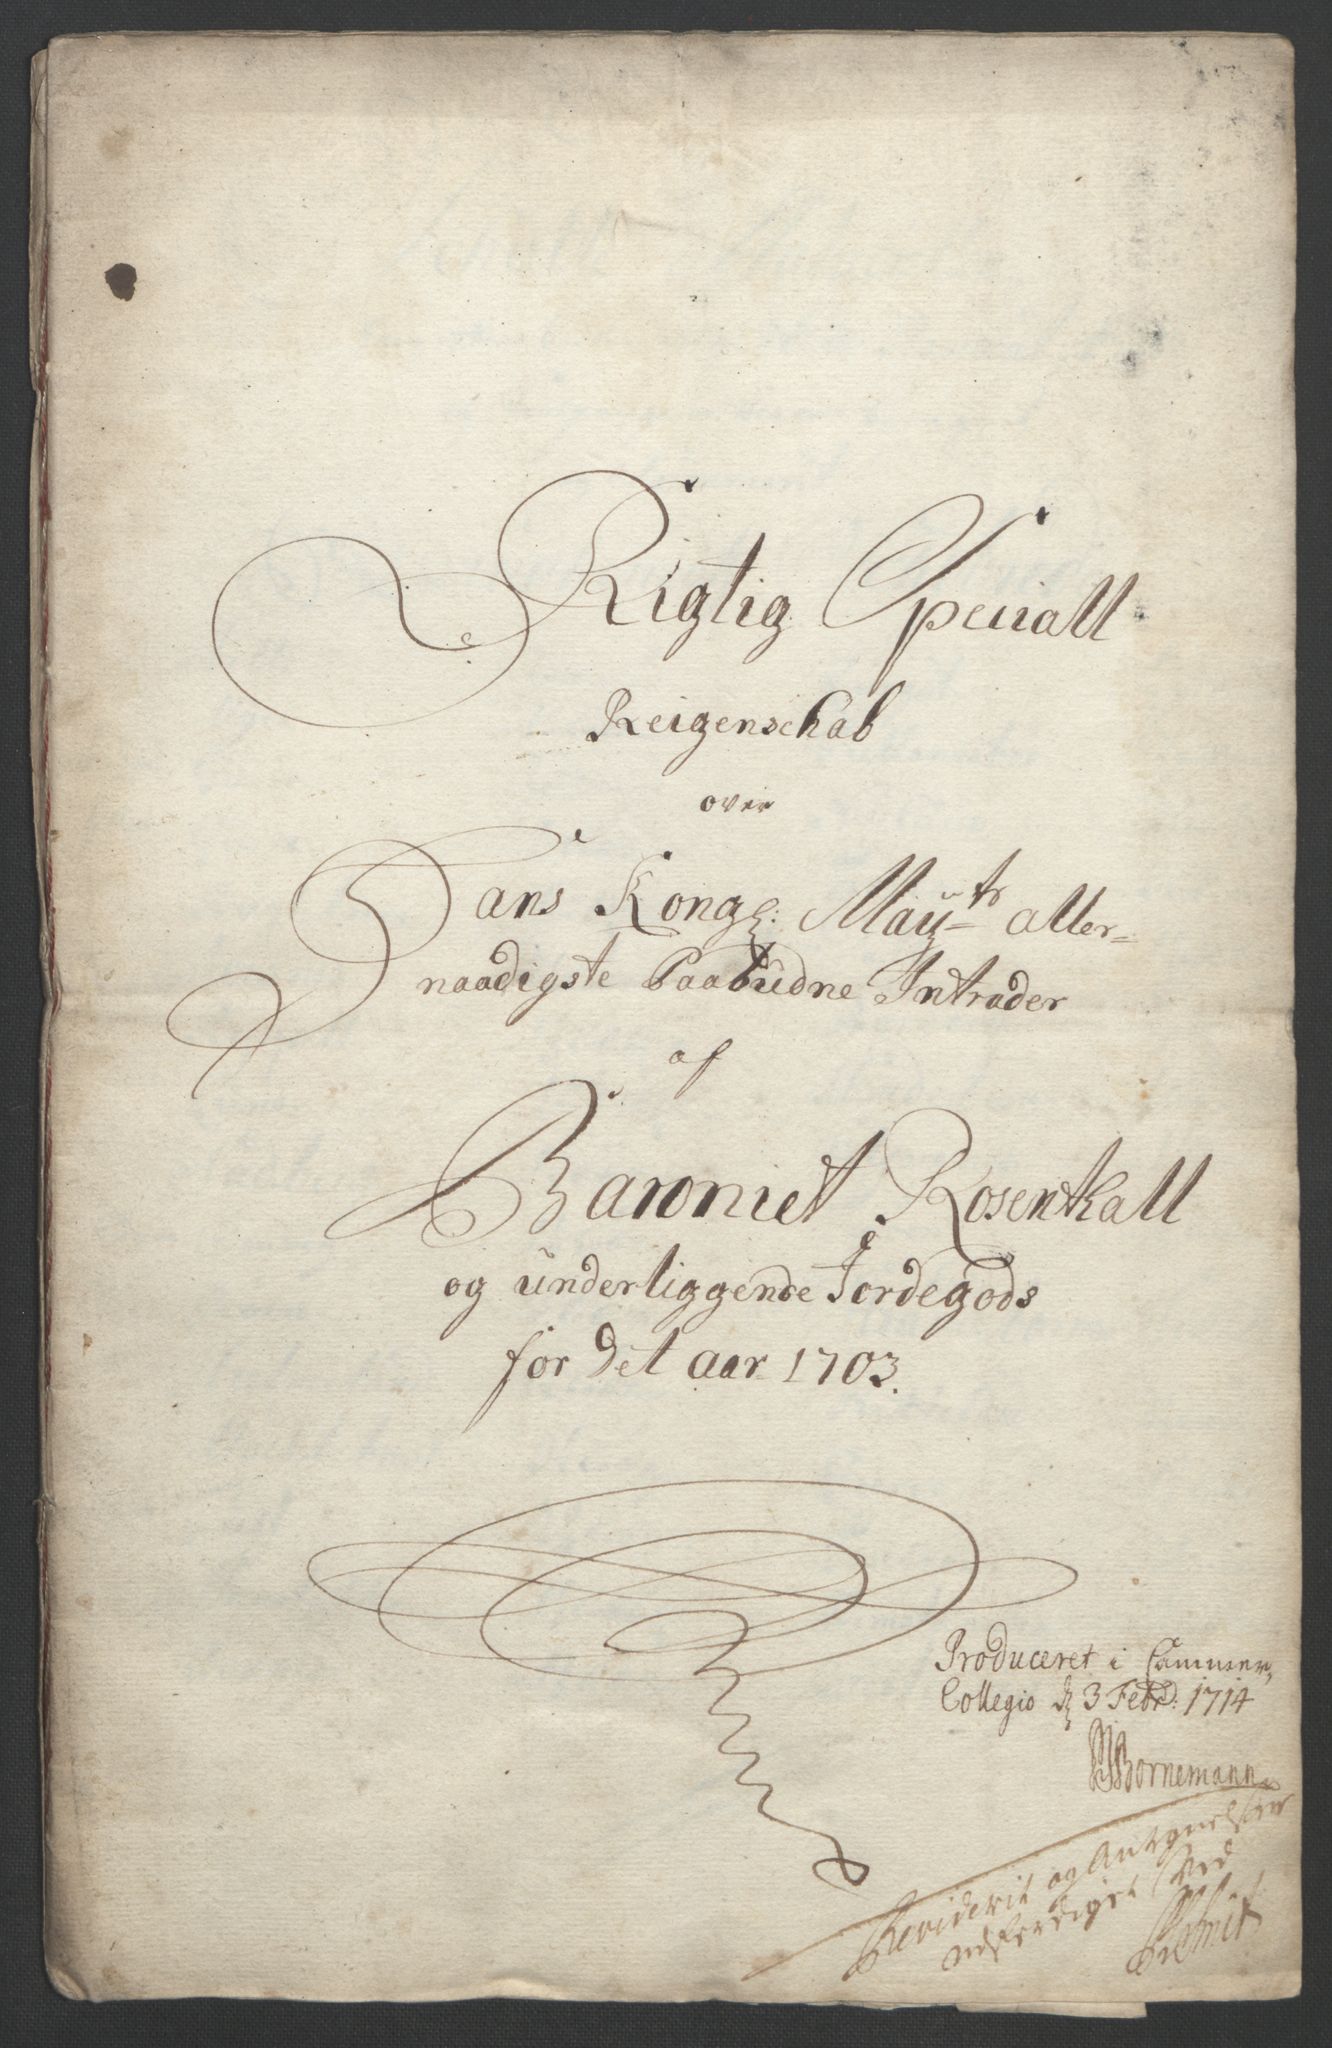 Rigtig Speciall
Reigenschab
over
Hans Kongl: Maÿ:ts aller=
naadigste Paabudne Intrader
af
Baroniet Rosenthall
og underliggende Jordegods
for det aar 1703.
Produceret i Cammer,
Collegio d 3 Febr: 1714
Bornemann
Reviderit og Antegnelser
udferdiget Ved
Smit